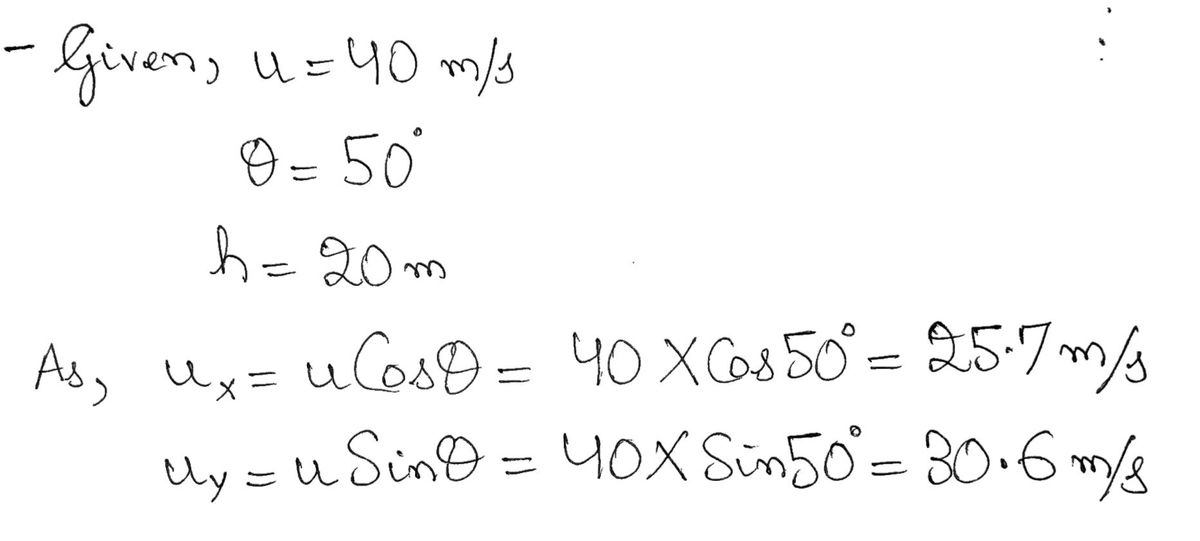 - Given, u = 40 m/s
θ = 50°
h = 20 m
As, uₓ = u Cosθ = 40 X Cos 50° = 25.7 m/s
uy = u Sinθ = 40 X Sin 50° = 30.6 m/s